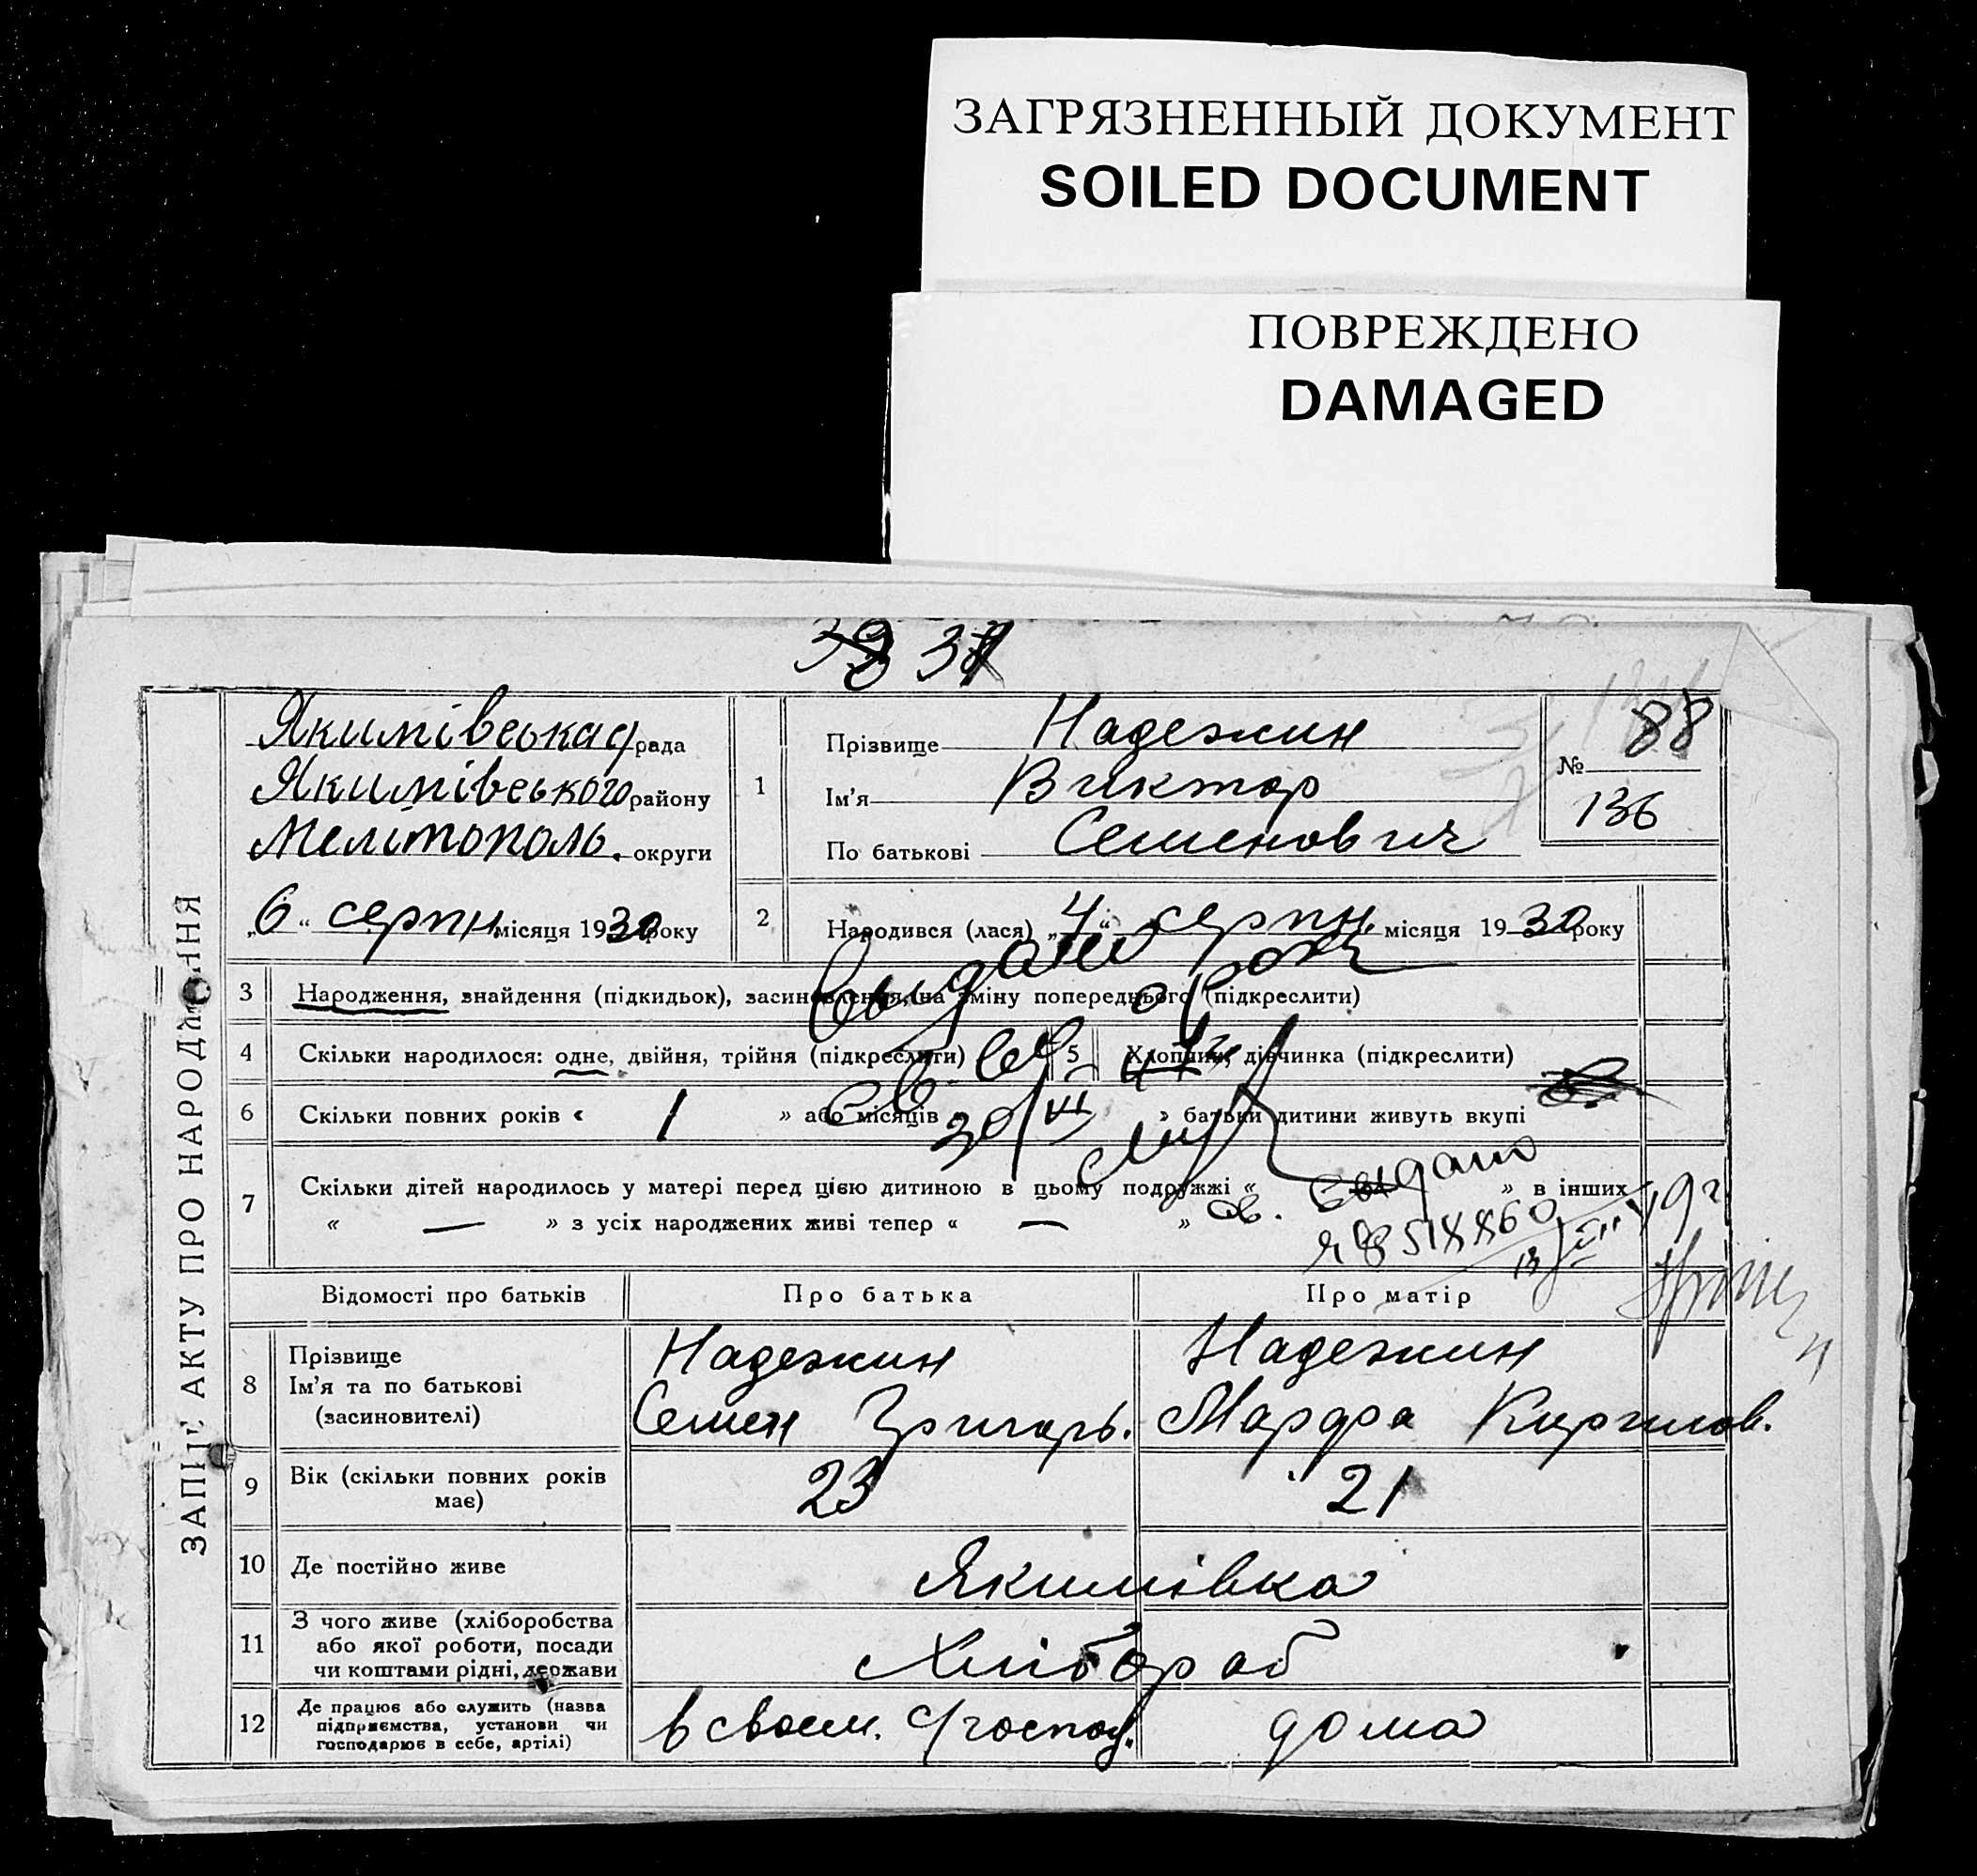 ЗАГРЯЗНЕННЫЙ ДОКУМЕНТ
SOILED DOCUMENT
ПОВРЕЖДЕНО
DAMAGED
ЗАПИС АКТУ ПРО НАРОДЖЕННЯ
Якимівська рада
Якимівського району
Мелітополь. округи
„6“ серпн місяця 1930 року
1
Прізвище Надежин
Ім’я Виктор
По батькові Семенович
№ 88
136
2
Народився (лася) „4“ серпн. місяця 1930 року
3 Народження, знайдення (підкидьок), засиновлення, на зміну попереднього (підкреслити)
4 Скільки народилося: одне, двійня, трійня (підкреслити) 5 Хлопчик, дівчинка (підкреслити)
6 Скільки повних років « 1 » або місяців « » батьки дитини живуть вкупі
7 Скільки дітей народилось у матері перед цією дитиною в цьому подружжі « » в інших
« — » з усіх народжених живі тепер « — »
выдано
св. выдано
Відомості про батьків Про батька Про матір
8 Прізвище
Ім’я та по батькові
(засиновителі)
Надежин
Семен Григорь.
Надежин
Марфа Кирилов.
9 Вік (скільки повних років має) 23 21
10 Де постійно живе Якимівка
11 З чого живе (хліборобства
або якої роботи, посади
чи коштами рідні, держави
Хлібороб
12 Де працює або служить (назва
підприємства, установи чи
господарює в себе, артілі)
в своем. с/господ. дома